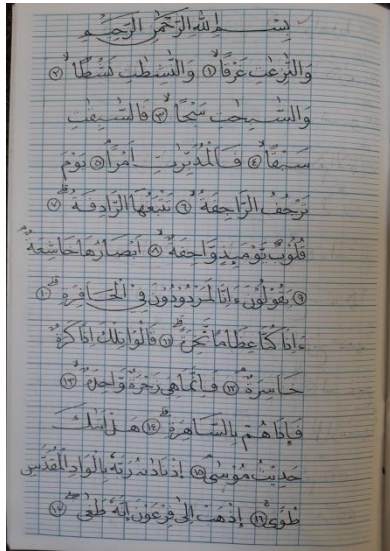 بِسْمِ اللهِ الرَّحْمٰنِ الرَّحِيْمِ
وَالنّٰزِعٰتِ غَرْقًا ۙ ١ وَّالنّٰشِطٰتِ نَشْطًا ۙ ٢
وَّالسّٰبِحٰتِ سَبْحًا ۙ ٣ فَالسّٰبِقٰتِ
سَبْقًا ۙ ٤ فَالْمُدَبِّرٰتِ اَمْرًا ۘ ٥ يَوْمَ
تَرْجُفُ الرَّاجِفَةُ ۙ ٦ تَتْبَعُهَا الرَّادِفَةُ ۗ ٧
قُلُوْبٌ يَّوْمَىِٕذٍ وَّاجِفَةٌ ۙ ٨ اَبْصَارُهَا خَاشِعَةٌ ۘ
٩ يَقُوْلُوْنَ ءَاِنَّا لَمَرْدُوْدُوْنَ فِى الْحَافِرَةِ ۗ ١٠
ءَاِذَا كُنَّا عِظَامًا نَّخِرَةً ۗ ١١ قَالُوْا تِلْكَ اِذًا كَرَّةٌ
خَاسِرَةٌ ۘ ١٢ فَاِنَّمَا هِىَ زَجْرَةٌ وَّاحِدَةٌ ۙ ١٣
فَاِذَا هُمْ بِالسَّاهِرَةِ ۗ ١٤ هَلْ اَتٰىكَ
حَدِيْثُ مُوْسٰى ۘ ١٥ اِذْ نَادٰىهُ رَبُّهٗ بِالْوَادِ الْمُقَدَّسِ
طُوًى ۚ ١٦ اِذْهَبْ اِلٰى فِرْعَوْنَ اِنَّهٗ طَغٰى ۖ ١٧